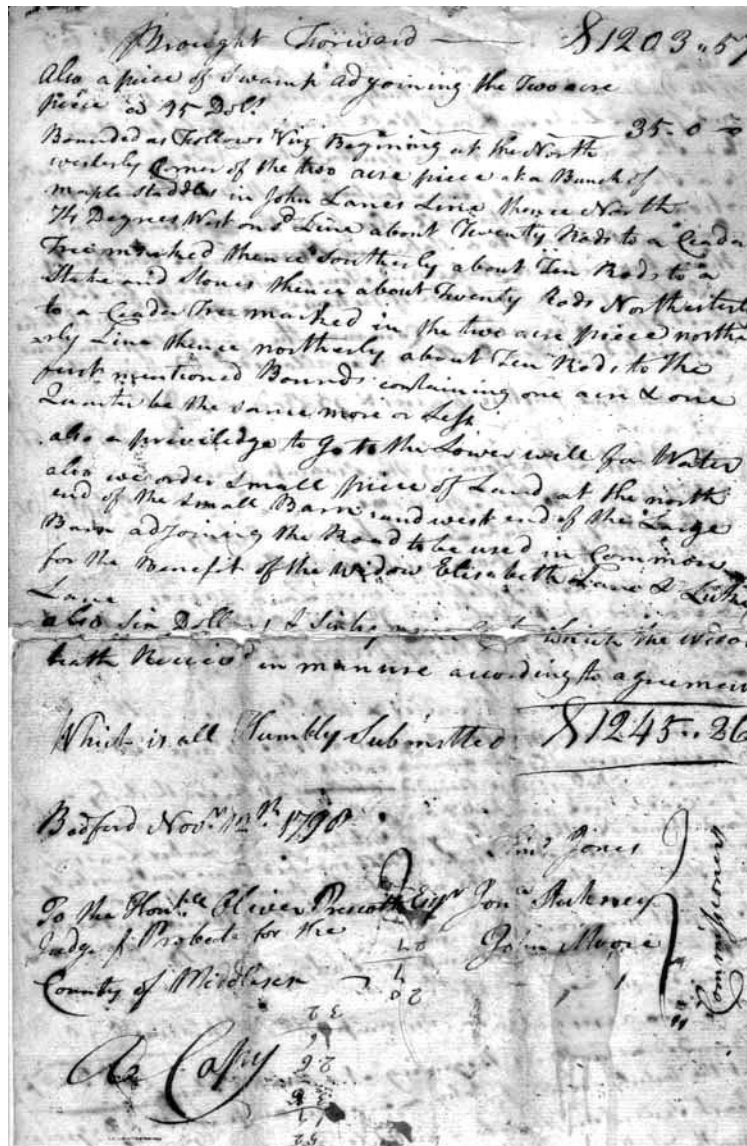 Brought Forward — $1203 .. 57
Also a piece of Swamp adjoining the Two acre
piece @ 35 Dols
35 - 0 - 0
Bounded as Follows Viz Begining at the North
westerly Corner of the two acre piece a Bunch of
maple staddles in John Lanes Line thence North
74 Degrees West on sd Line about Twenty Rods to a Ceader
Tree marked thence Southerly about Ten Rods to a
Stake and Stones thence about Twenty Rods
to a Ceader Tree marked in the two acre piece north
erly Line thence northerly about Ten Rods to the
first mentioned Bounds containing one acre & one
Quarter be the same more or Less
also a priviledge to go to the Lower well for Water
also we order small piece of Land at the north
end of the small Barn and west end of the Large
Barn adjoining the Road to be used in Common
for the Benefit of the widow Elisabeth Lane &
Lane
also Six Dollars & which the
hath Received in manure according to agreement
Which is all Humbly Submitted $1245 .. 26
Bedford Novr 12th 1798
Jones
To the Honble Oliver Prescott Esqr Jona
Judge of Probate for the
John Moore
County of Middlesex
Commissioners
A Copy